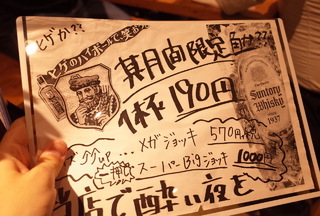 ヒゲか??
ヒゲのハイボールで
某月間限定
角か??
1杯190円
SUNTORY
Suntory
Whisky
1937
メガジョッキ 570円
スーパーBigジョッキ 1000円
当店で酔い夜を